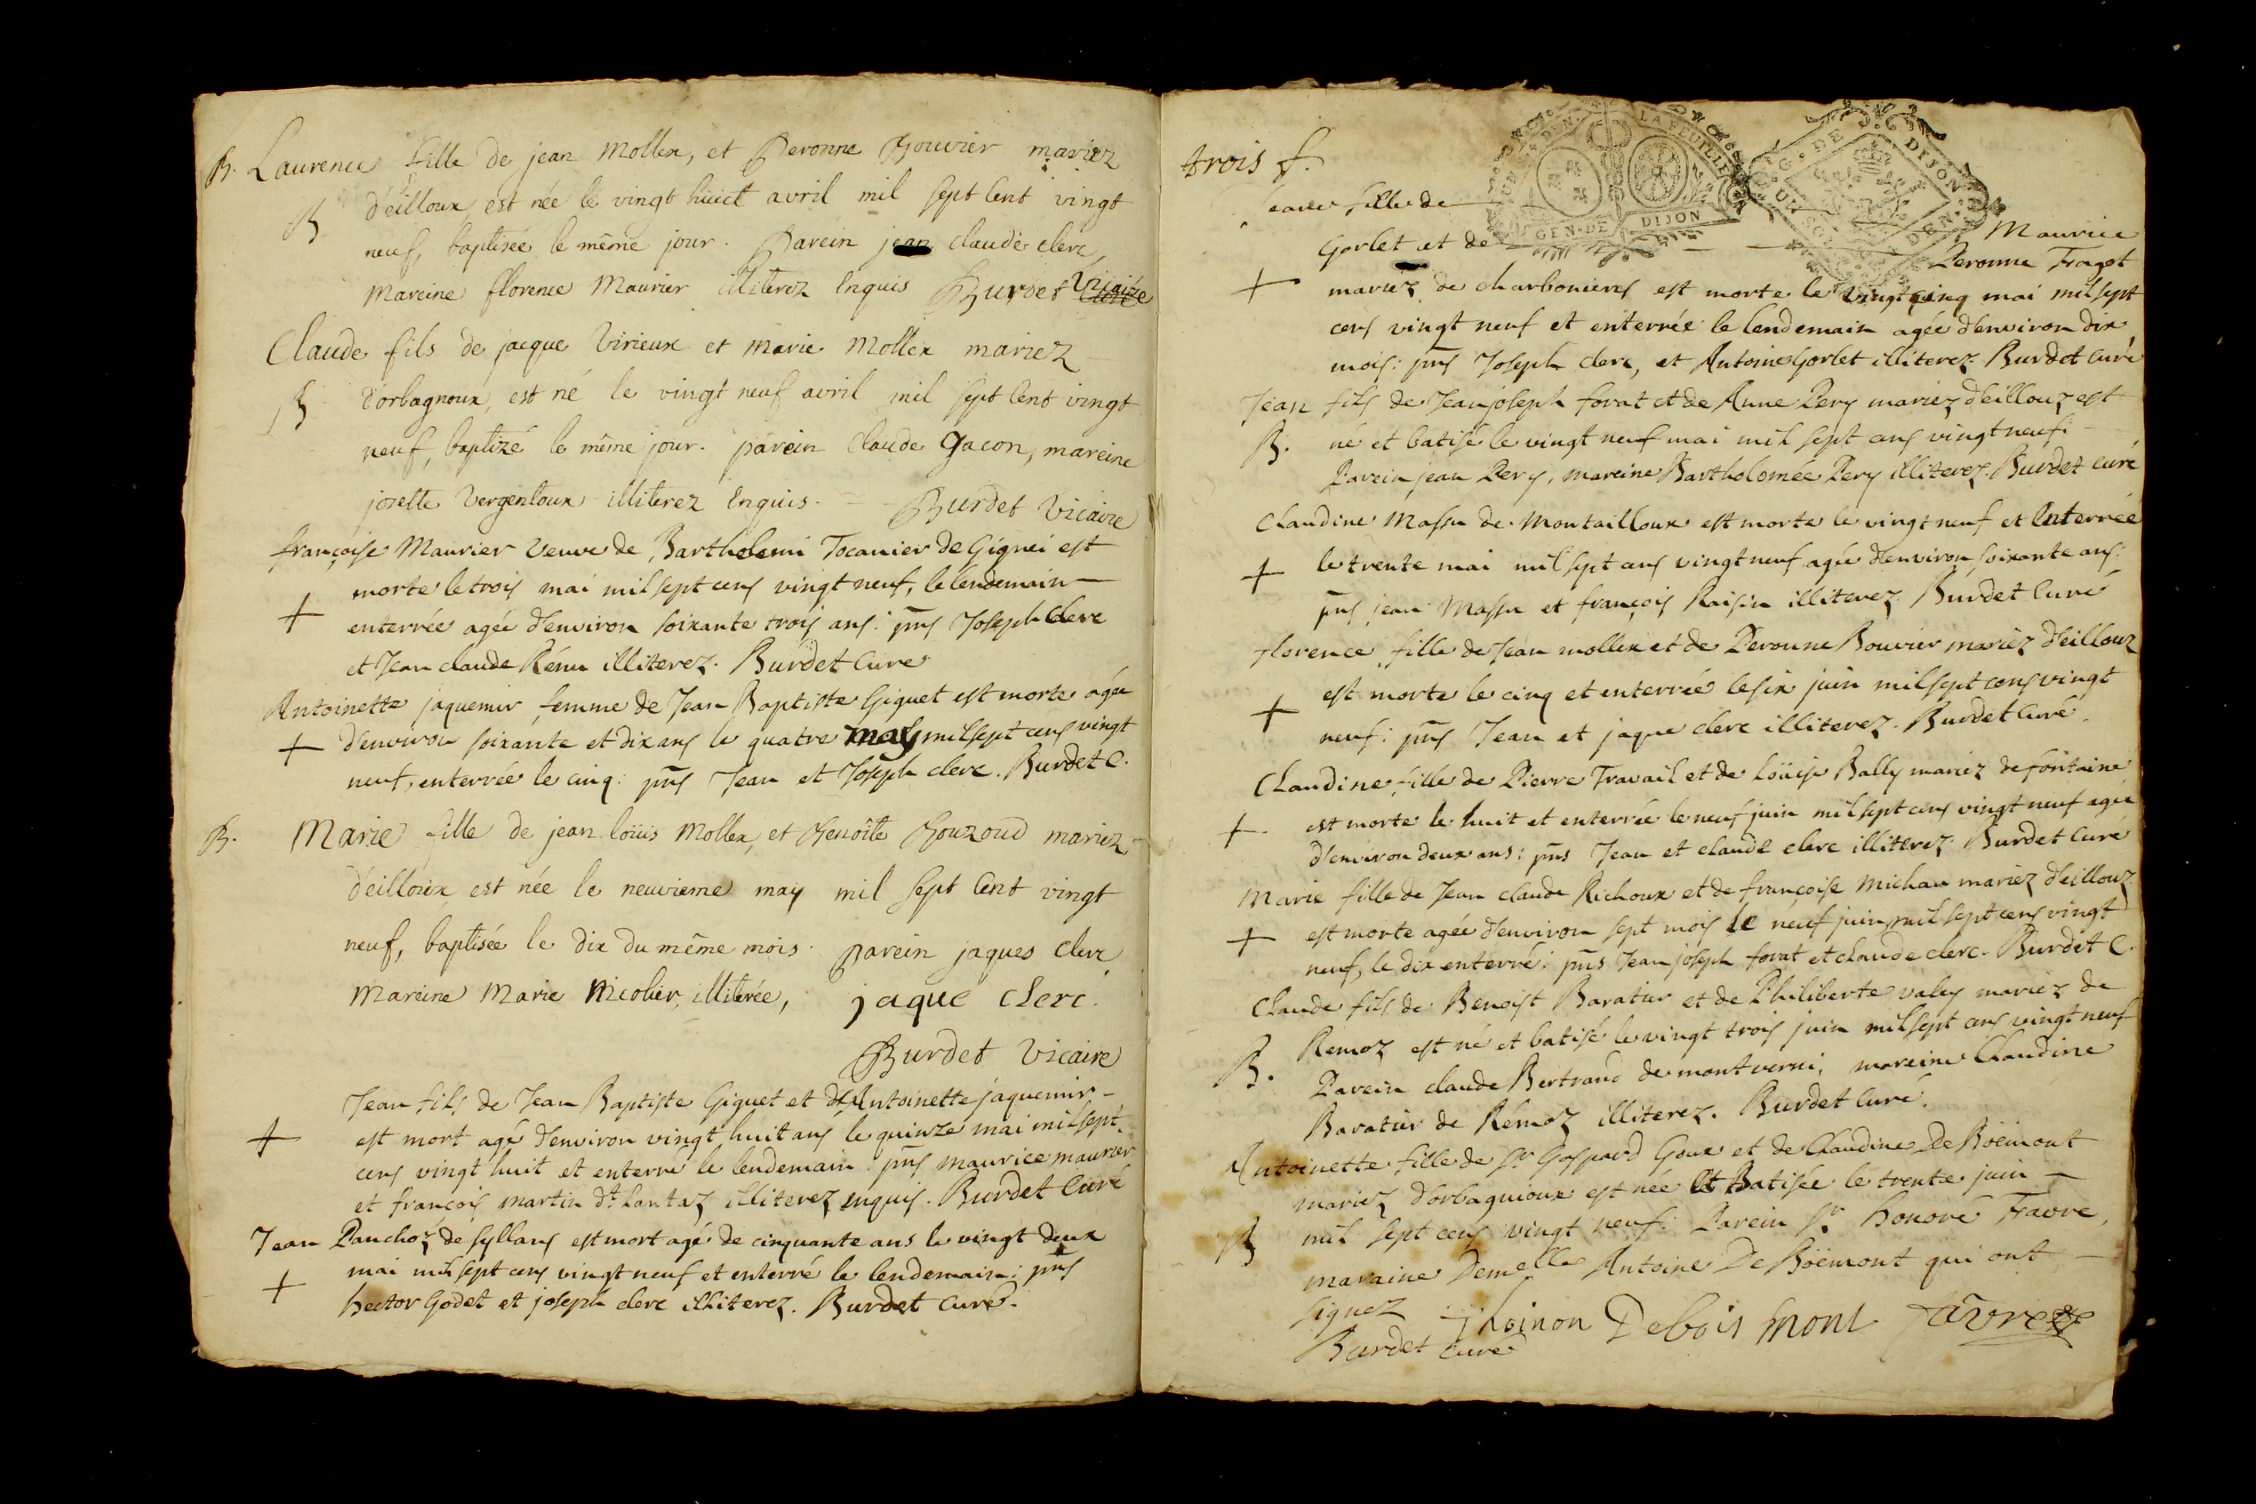 B. Laurence fille de jean Mollex, et Peronne Bouvier mariez
B d'eilloux, est née le vingt huict avril mil sept cent vingt
neuf, baptisée le même jour. Parein jean claude clerc,
Mareine florence Maurier illiterez enquis Burdet Vicaire
Claude fils de jacque Virieux et marie Mollex mariez
B d'orbagnoux, est né le vingt neuf avril mil sept cent vingt
neuf, baptizé le même jour. parein claude Gacon, mareine
josette Vergenloux illiterez enquis. Burdet Vicaire
françoise Maurier veuve de Barthelemi Tocanier de Gignei est
morte le trois mai mil sept cens vingt neuf, le lendemain
+ enterrée agée d'environ soixante trois ans: pns Joseph Clerc
et Jean claude Rénu illiterez. Burdet Curé
Antoinette jaquemir femme de Jean Baptiste Giguet est morte agée
+ d'environ soixante et dix ans le quatre may mil sept cens vingt
neuf, enterrée le cinq: pns Jean et Joseph clerc. Burdet C.
B. Marie fille de jean loüis Mollex, et Benoîte mariez
d'eilloux, est née le neuvieme may mil sept cent vingt
neuf, baptisée le dix du même mois. parein jaques clerc
Mareine Marie Nicolier, illiterée, jaque clerc.
Burdet Vicaire
Jean fils de Jean Baptiste Giguet et d'Antoinette jaquemir
+ est mort agé d'environ vingt huit ans le quinze mai mil sept
cens vingt huit et enterré le lendemain pns maurice maurier
et françois martin dt Lantaz illiterez enquis. Burdet Curé
Jean Panchoz de syllans est mort agé de cinquante ans le vingt deux
+ mai mil sept cens vingt neuf et enterré le lendemain: pns
hector Godet et joseph clerc illiterez. Burdet Curé.
trois f.
fille de Maurice
Gorlet et de Peronne Fragot
+ mariez de charbonieres est morte le vingt cinq mai mil sept
cens vingt neuf et enterrée le lendemain agée d'environ dix
mois: pns Joseph clerc, et Antoine Gorlet illiterez. Burdet Curé
Jean fils de Jean joseph forat et de Anne Pery mariez d'eillouz est
B. né et batisé le vingt neuf mai mil sept cens vingt neuf:
Parein jean Pery, mareine Bartholomée Pery illiterez. Burdet Curé
Claudine Massu de Montailloux est morte le vingt neuf et enterrée
+ le trente mai mil sept cens vingt neuf agée d'environ soixante ans:
pns jean Massu et françois Raisin illiterez. Burdet Curé
florence fille de Jean mollex et de Peronne Bouvier mariez d'eillouz
+ est morte le cinq et enterrée le six juin mil sept cens vingt
neuf: pns Jean et jaque clerc illiterez. Burdet Curé.
Claudine fille de Pierre Travail et de Loüise Bally mariez de fontaine
+ est morte le huit et enterrée le neuf juin mil sept cens vingt neuf agée
d'environ deux ans: pns Jean et claude clerc illiterez. Burdet Curé
Marie fille de Jean claude Richoux et de françoise Michau mariez d'eillouz
+ est morte agée d'environ sept mois le neuf juin mil sept cens vingt
neuf, le dix enterré: pns Jean joseph forat et claude clerc. Burdet C.
Claude fils de Benoist Baratur et de Philiberte valey mariez de
B. Remoz est né et batisé le vingt trois juin mil sept cens vingt neuf
Parein claude Bertrand de montverni, mareine Claudine
Baratur de Rémoz illiterez. Burdet Curé.
Antoinette fille de Sr Gaspard Goux et de Claudine De Böémont
mariez d'orbagnioux est née et Batisée le trente juin
B mil sept cens vingt neuf: Parein Sr honoré Favre,
maraine Demelle Antoine De Böémont qui ont
signez Thoinon Debois mont favre
Burdet Curé
GEN. DE DIJON
LA FEUILLE
G. DE DIJON